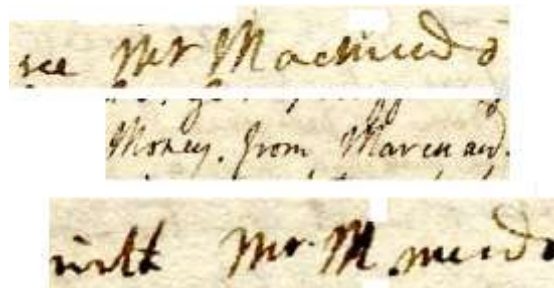 see Mr Macmurdo
Money. from
with Mr. M murdo